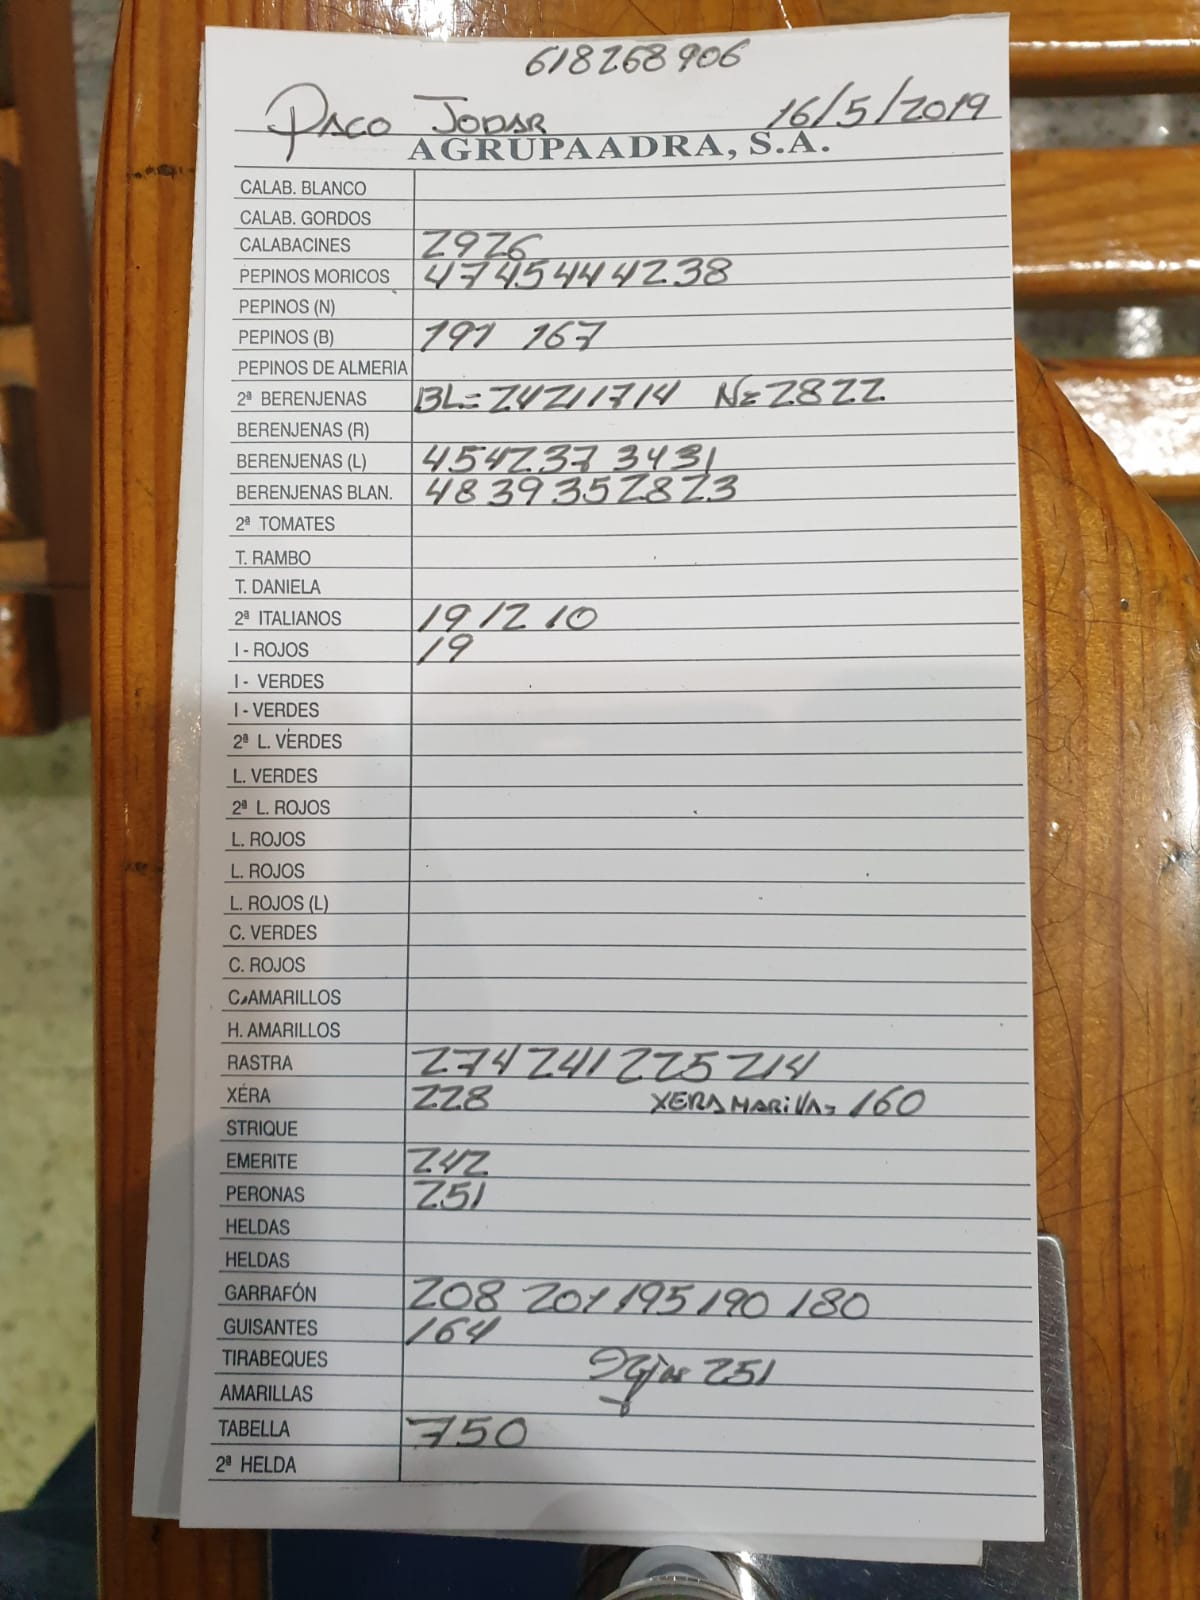 618268906
PACO JODAR 16/5/2019
AGRUPAADRA, S.A.
CALAB. BLANCO
CALAB. GORDOS
CALABACINES 2926
PEPINOS MORICOS 4745444238
PEPINOS (N)
PEPINOS (B) 191 167
PEPINOS DE ALMERIA
2ª BERENJENAS BL= 24211714 N= 2822
BERENJENAS (R)
BERENJENAS (L) 454237 3431
BERENJENAS BLAN. 4839352823
2ª TOMATES
T. RAMBO
T. DANIELA
2ª ITALIANOS 19 12 10
I - ROJOS 19
I - VERDES
I - VERDES
2ª L. VERDES
L. VERDES
2ª L. ROJOS
L. ROJOS
L. ROJOS
L. ROJOS (L)
C. VERDES
C. ROJOS
C. AMARILLOS
H. AMARILLOS
RASTRA 274 241 225 214
XÉRA 228 XERA MARIVA= 160
STRIQUE
EMERITE 242
PERONAS 251
HELDAS
HELDAS
GARRAFÓN 208 201 195 190 180
GUISANTES 164
TIRABEQUES 251
AMARILLAS
TABELLA 750
2ª HELDA